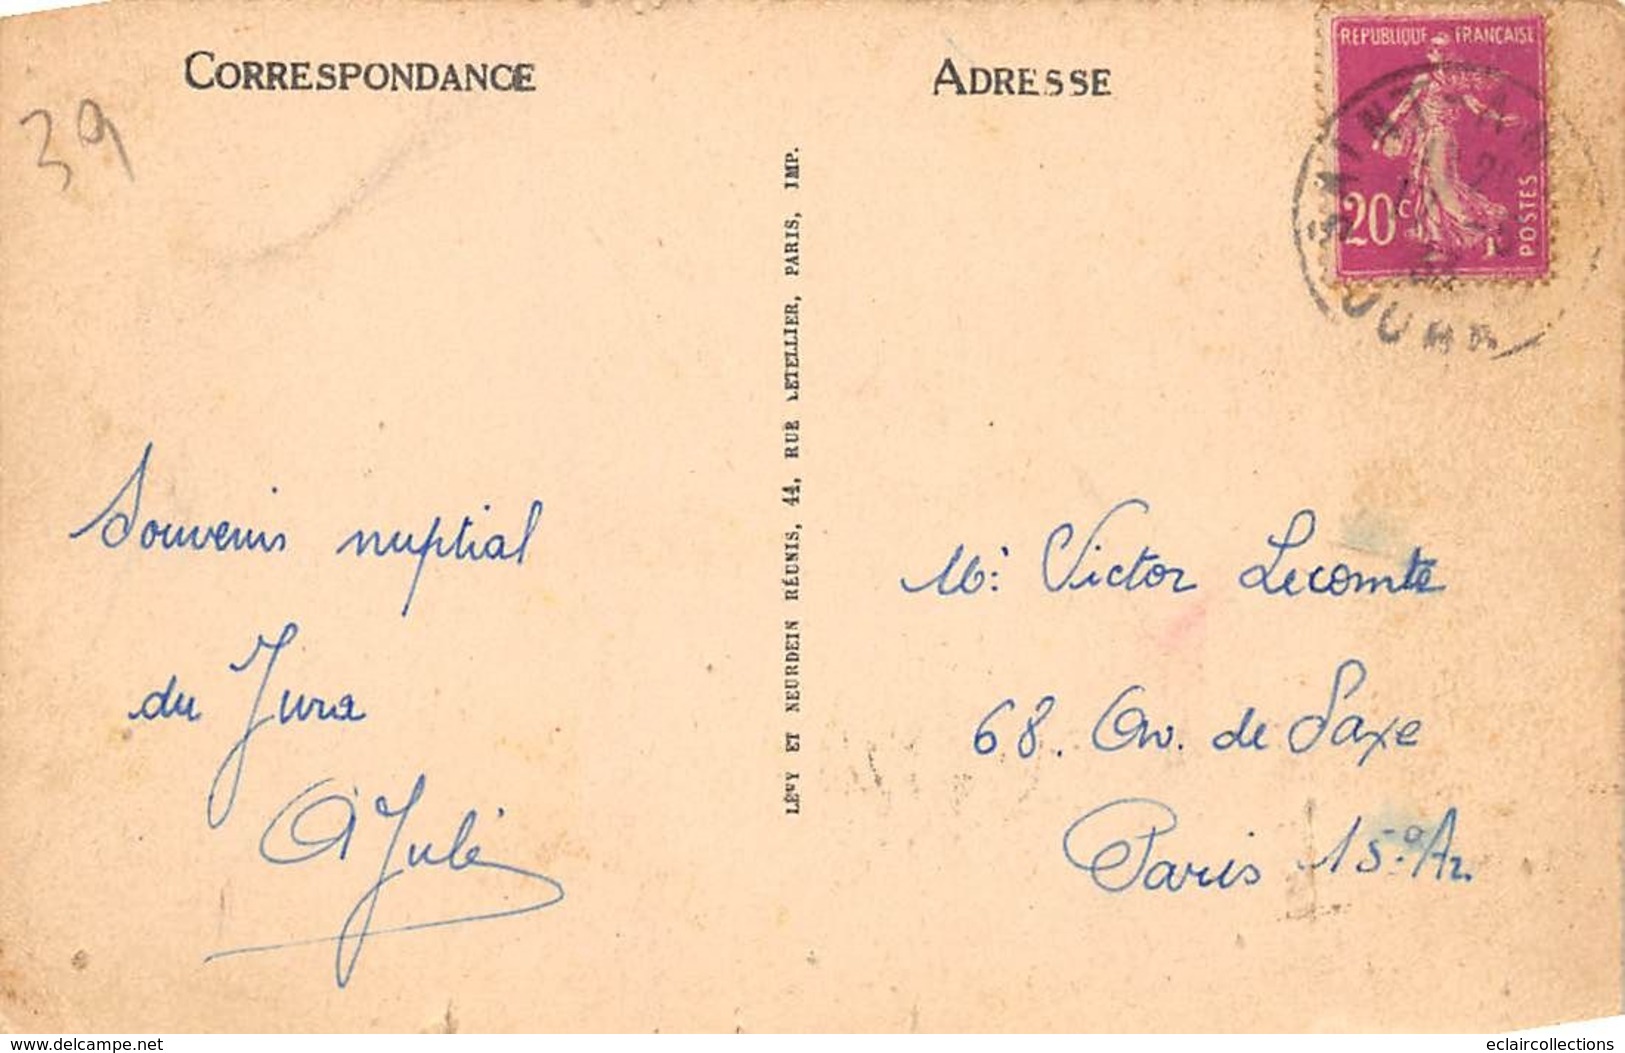 CORRESPONDANCE
39
Souvenir nuptial
du Jura
LÉVY ET NEURDEIN RÉUNIS, 44, RUE LETELLIER, PARIS, IMP.
ADRESSE
REPUBLIQUE FRANÇAISE
20c
POSTES
SAINT-A
JURA
Mr: Victor Lecomte
68. Av. de Saxe
Paris 15º Ar.
www.delcampe.net
eclaircollections